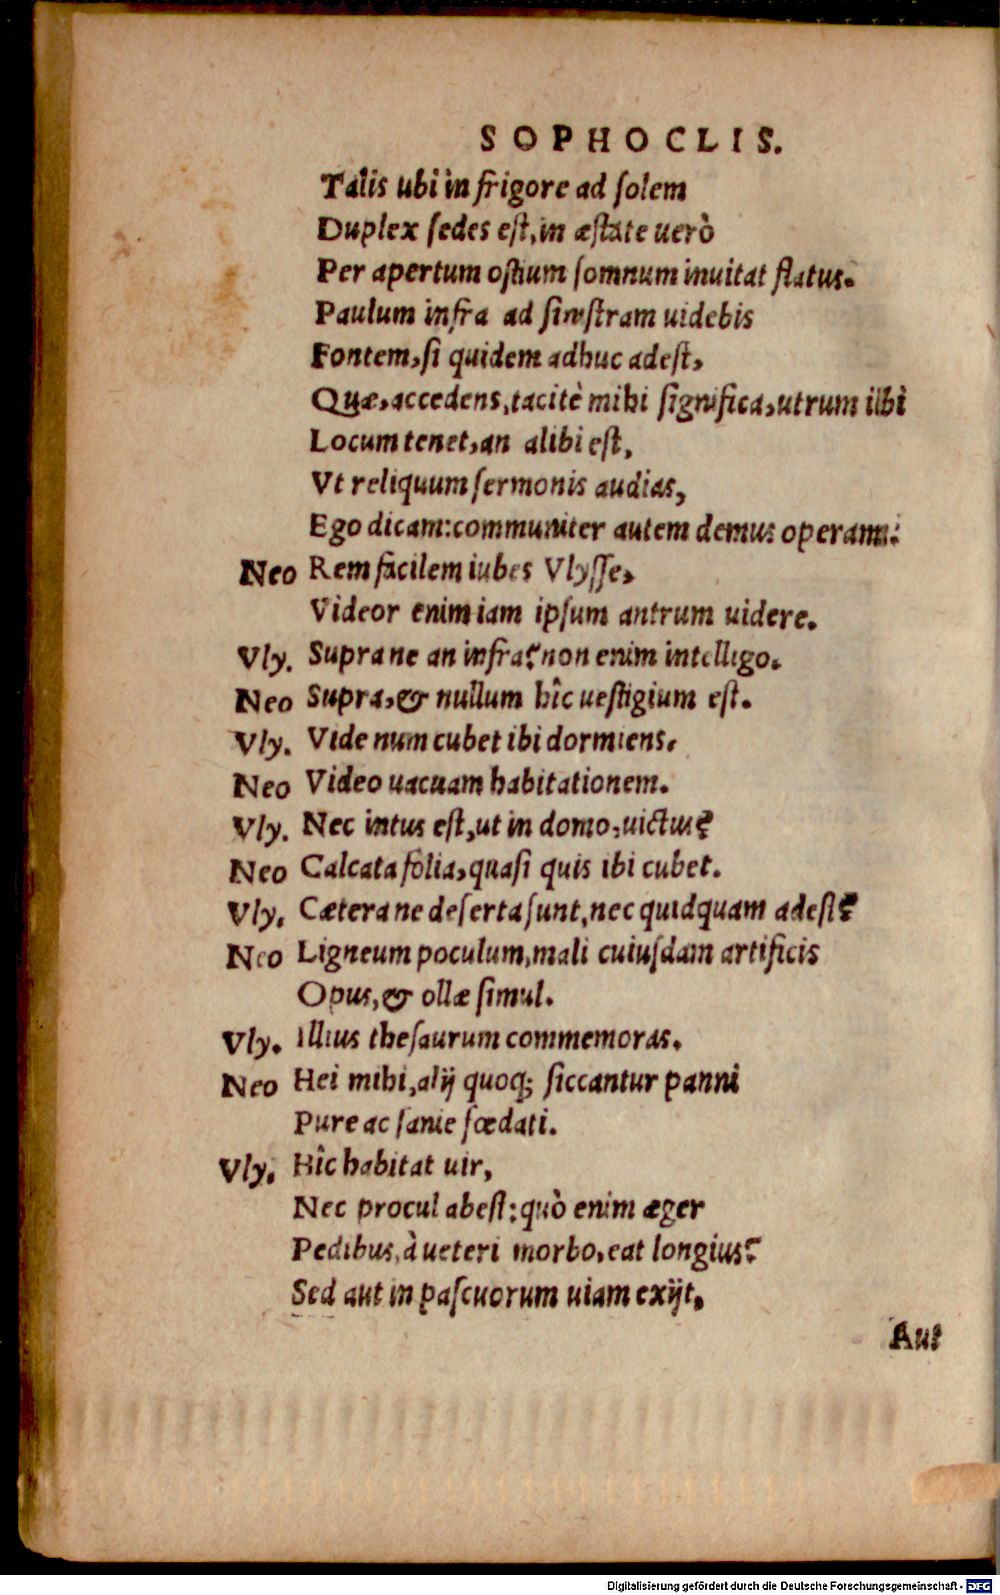 SOPHOCLIS.
Talis ubi in frigore ad ſolem
Duplex ſedes eſt, in æſtate uerò
Per apertum oſtium ſomnum inuitat flatus.
Paulum infra ad ſiniſtram uidebis
Fontem, ſi quidem adhuc adeſt,
Quæ, accedens, tacitè mihi ſignifica, utrum ilbi
Locum tenet, an alibi eſt,
Vt reliquum ſermonis audias,
Ego dicam: communiter autem demus operam.
Neo Rem facilem iubes Vlyſſe,
Videor enim iam ipſum antrum uidere.
Vly. Supra ne an infra? non enim intelligo.
Neo Supra, & nullum hîc ueſtigium eſt.
Vly. Vide num cubet ibi dormiens.
Neo Video uacuam habitationem.
Vly. Nec intus eſt, ut in domo, uictus?
Neo Calcata folia, quaſi quis ibi cubet.
Vly. Cætera ne deſerta ſunt, nec quidquam adeſt?
Neo Ligneum poculum, mali cuiuſdam artificis
Opus, & ollæ ſimul.
Vly. Illius theſaurum commemoras.
Neo Hei mihi, alij quoq; ſiccantur panni
Pure ac ſanie fœdati.
Vly. Hîc habitat uir,
Nec procul abeſt: quò enim æger
Pedibus, à ueteri morbo, eat longius?
Sed aut in paſcuorum uiam exijt,
Aut
Digitalisierung gefördert durch die Deutsche Forschungsgemeinschaft - DFG